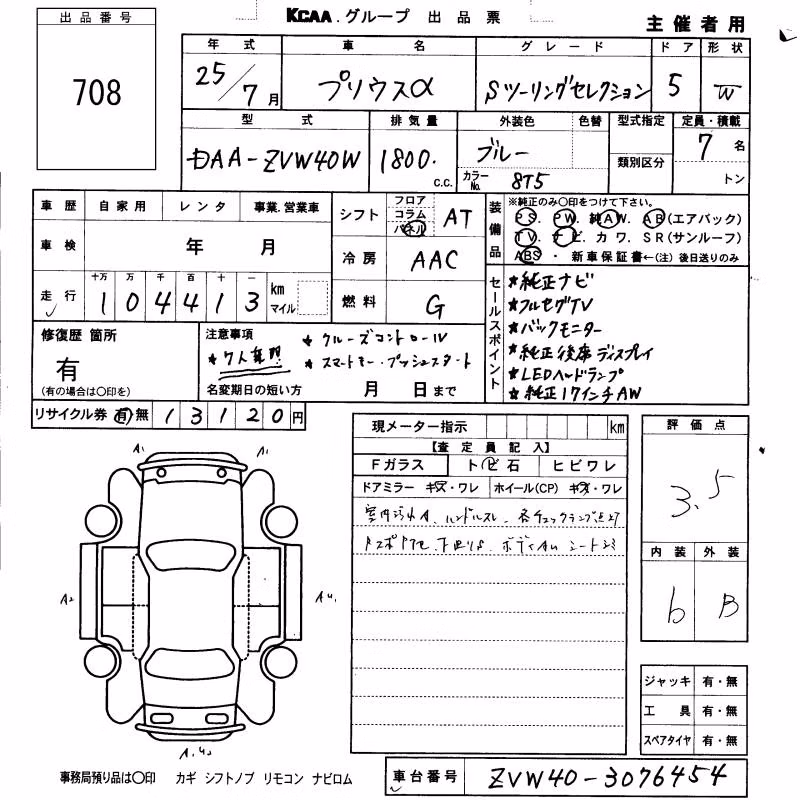 KCAA.グループ 出品票
主催者用
出品番号
708
年式 車名 グレード ドア 形状
25/7月 プリウスα Sツーリングセレクション 5 W
型式 排気量 外装色 色替 型式指定 定員・積載
DAA-ZVW40W 1800. c.c. ブルー 7名
カラーNo. 8T5 類別区分 トン
車歴 自家用 レンタ 事業.営業車
車検 年 月
走行 十万 万 千 百 十 一 km マイル
1 0 4 4 1 3
シフト フロア コラム パネル AT
冷房 AAC
燃料 G
装備品 ※純正のみ○印をつけて下さい。
PS. PW. 純AW. AB(エアバック)
TV. ナビ. カワ. SR(サンルーフ)
ABS ・ 新車保証書←(注) 後日送りのみ
セールスポイント
★純正ナビ
★フルセグTV
★バックモニター
★純正後席ディスプレイ
★LEDヘッドランプ
★純正17インチAW
修復歴 箇所
有
(有の場合は○印を)
注意事項
★クルーズコントロール
★スマートキー・プッシュスタート
名変期日の短い方 月 日まで
リサイクル券 有 無 1 3 1 2 0 円
現メーター指示 km
【査定員記入】
Fガラス トビ石 ヒビワレ
ドアミラー キズ・ワレ ホイール(CP) キズ・ワレ
評価点
3.5
内装 外装
b B
A1
A1
A2
A4.
ジャッキ 有・無
工具 有・無
スペアタイヤ 有・無
事務局預り品は○印 カギ シフトノブ リモコン ナビロム
車台番号 ZVW40-3076454